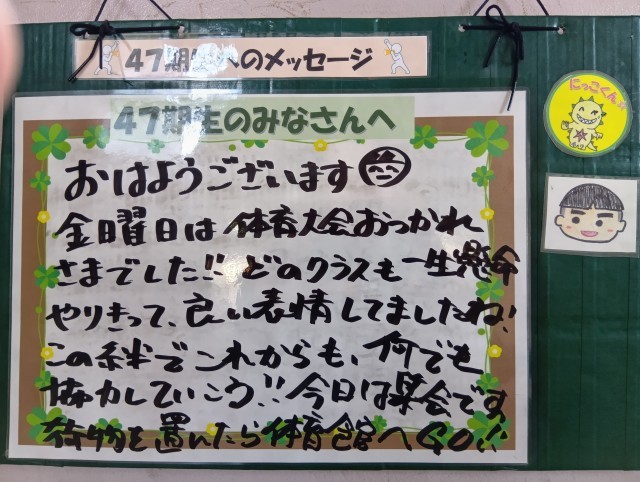 47期生へのメッセージ
47期生のみなさんへ
おはようございます
金曜日は体育大会おつかれ
さまでした!! どのクラスも一生懸命
やりきって、良い表情してましたね!
この絆でこれからも、何でも
協力していこう!! 今日は集会です
荷物を置いたら体育館へGO!!
にっこくん